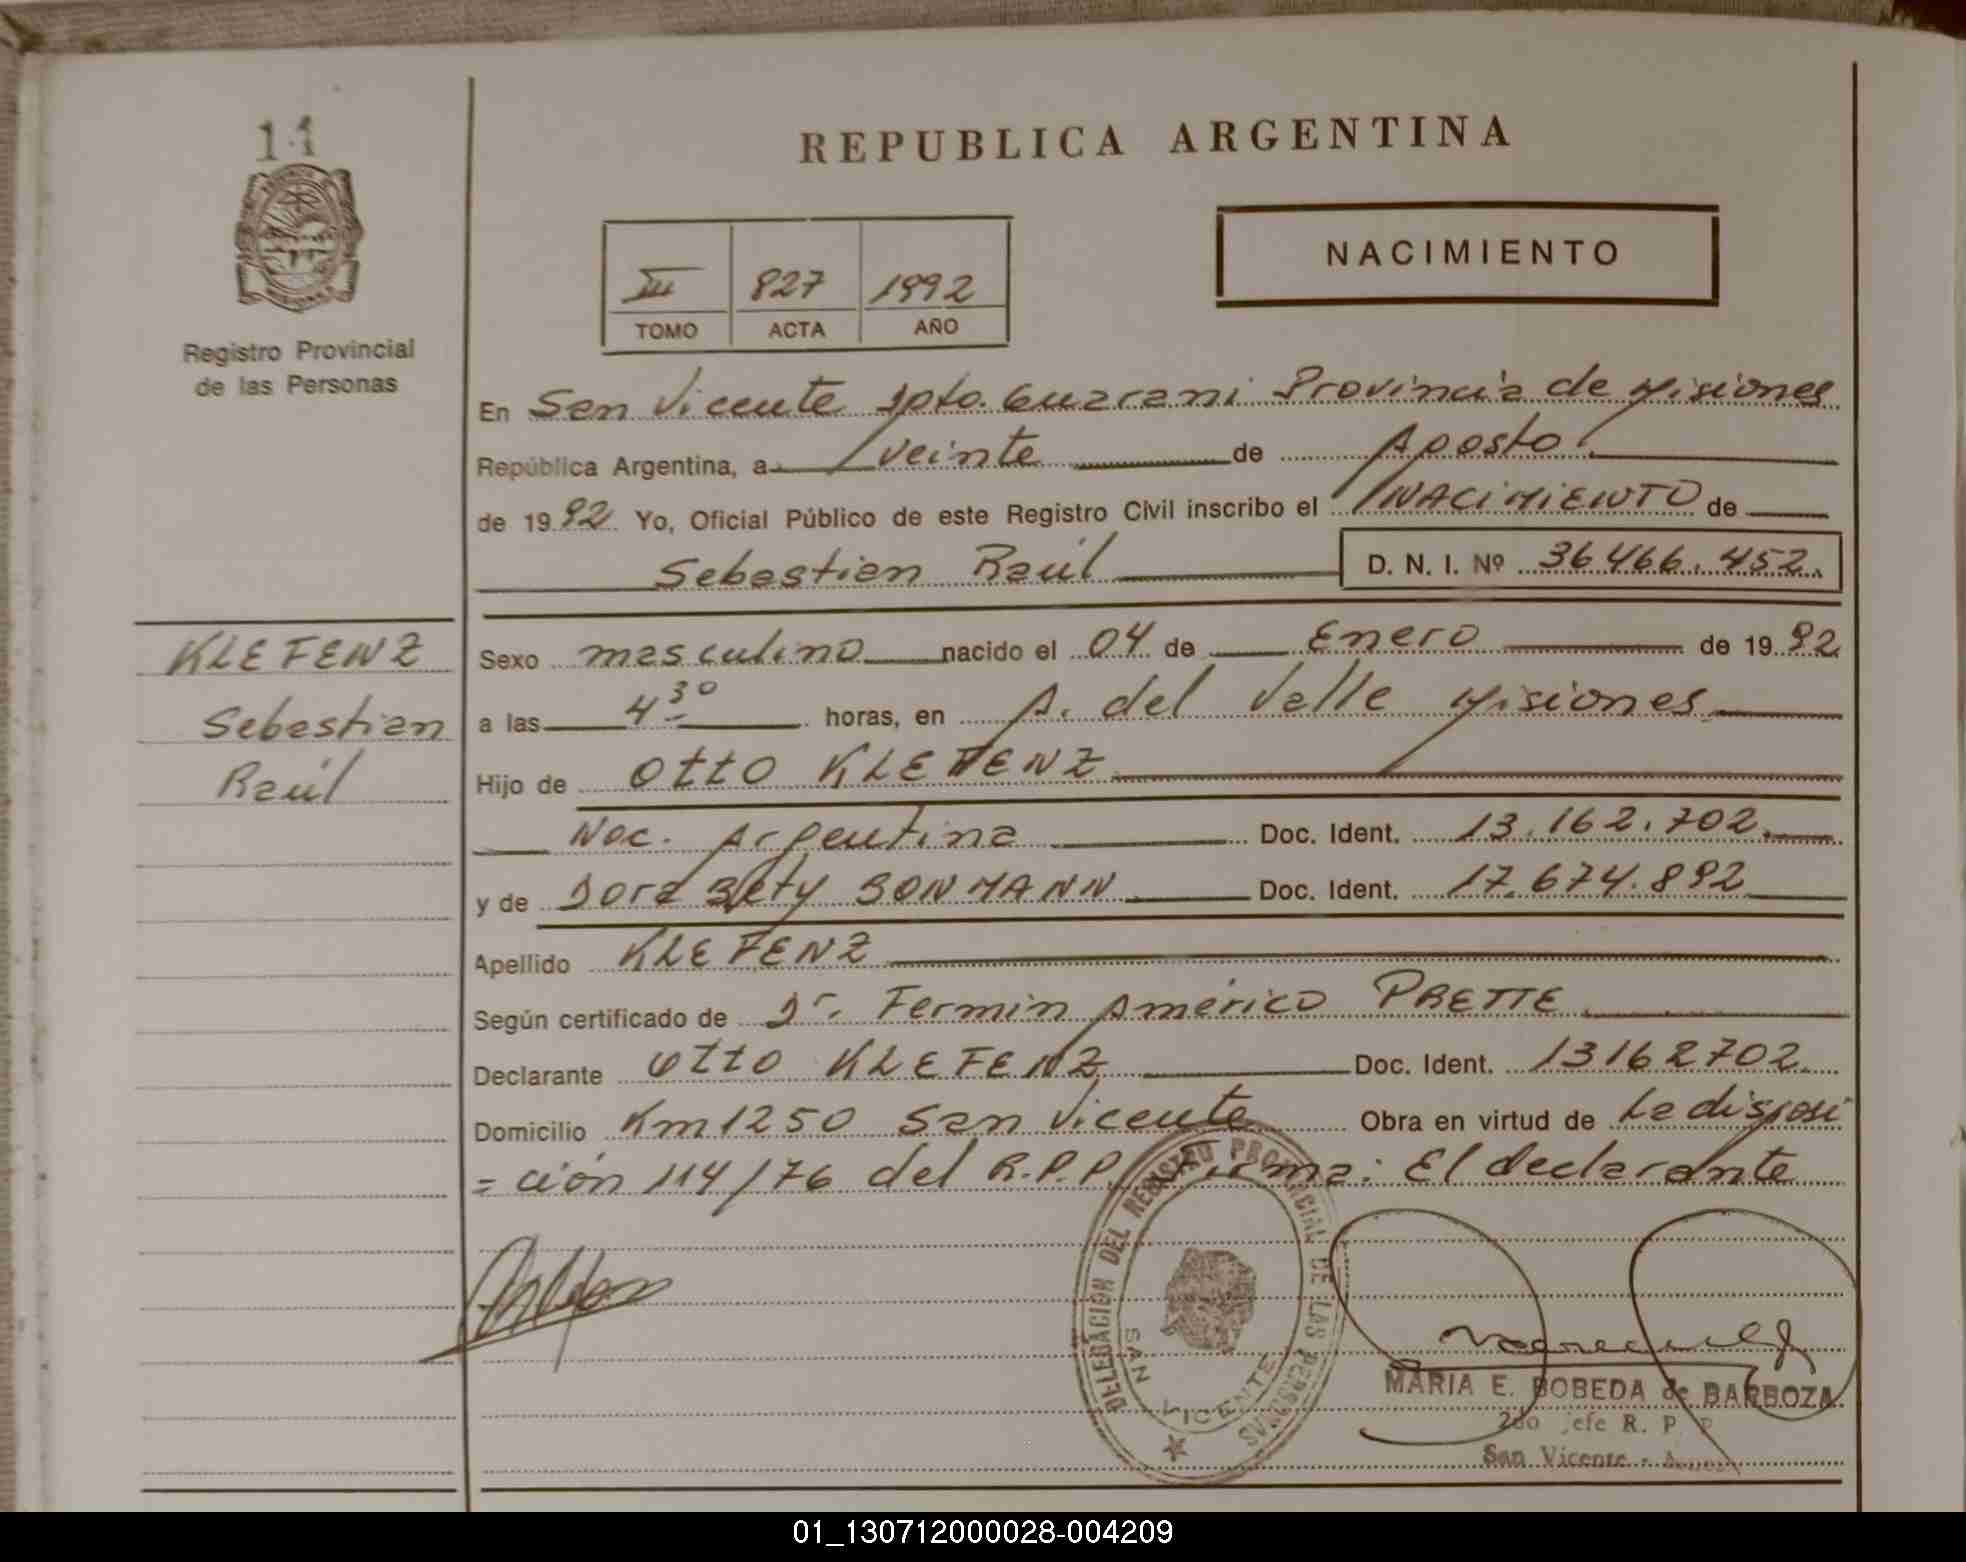 11
REPUBLICA ARGENTINA
NACIMIENTO
III 827 1992
TOMO ACTA AÑO
Registro Provincial
de las Personas
En San Vicente Dpto. Guarani Provincia de Misiones
República Argentina, a veinte de Agosto
de 1992 Yo, Oficial Público de este Registro Civil inscribo el NACIMIENTO de
Sebastian Raúl D. N. I. Nº 36466.452.
KLEFENZ
Sebastian
Raúl
Sexo masculino nacido el 04 de Enero de 1992
a las 4 30 horas, en A. del Valle Misiones
Hijo de Otto KLEFENZ
Nac. Argentina Doc. Ident. 13.162.702.
y de Dora Bety BONMANN Doc. Ident. 17.674.892
Apellido KLEFENZ
Según certificado de Dr. Fermin Américo PRETTE
Declarante Otto KLEFENZ Doc. Ident. 13162702.
Domicilio Km 1250 San Vicente Obra en virtud de La disposi
=ción 114/76 del R.P.P. Firma: El declarante
DELEGACION DEL REGISTRO PROVINCIAL DE LAS PERSONAS
SAN VICENTE
MARIA E. BOBEDA de BARBOZA
2do Jefe R. P. P
San Vicente -
01_130712000028-004209